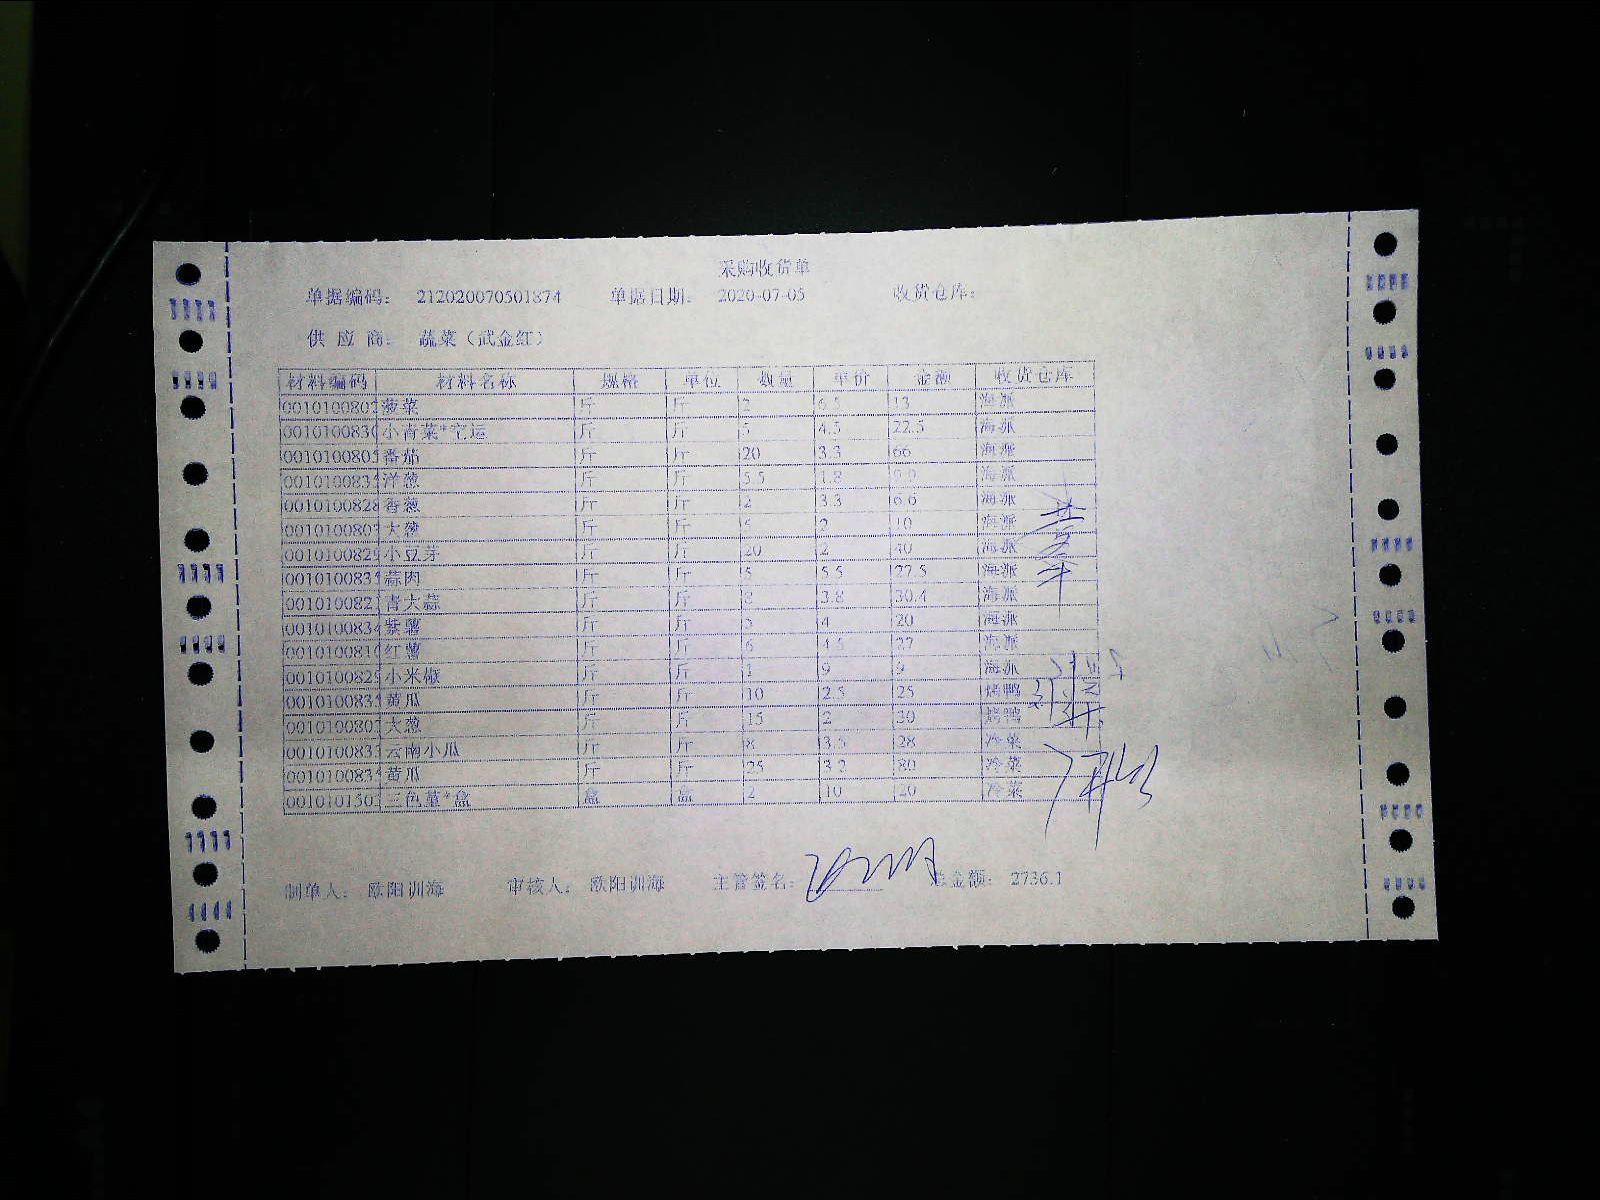 采购收货单
单据编码: 212020070501874 单据日期: 2020-07-05 收货仓库:
供 应 商: 蔬菜（武金红）
材料编码 材料名称 规格 单位 数量 单价 金额 收货仓库
0010100802 菠菜 斤 斤 2 6.5 13 海派
001010083 小青菜*宅运 斤 斤 5 4.5 22.5 海派
001010080 番茄 斤 斤 20 3.3 66 海派
001010083 洋葱 斤 斤 5.5 1.8 9.9 海派
0010100828 香葱 斤 斤 2 3.3 6.6 海派
001010080 大葱 斤 斤 5 2 10 海派
001010082 小豆芽 斤 斤 20 2 40 海派
001010083 蒜肉 斤 斤 5 5.5 27.5 海派
001010082 青大蒜 斤 斤 8 3.8 30.4 海派
0010100834 紫薯 斤 斤 5 4 20 海派
001010081 红薯 斤 斤 6 4.5 27 海派
001010082 小米椒 斤 斤 1 9 9 海派
001010083 黄瓜 斤 斤 10 2.5 25 烤鸭
001010080 大葱 斤 斤 15 2 30 烤鸭
001010083 云南小瓜 斤 斤 8 3.5 28 冷菜
001010083 黄瓜 斤 斤 25 3.2 80 冷菜
001010150 三色堇*盒 盒 盒 2 10 20 冷菜
制单人: 欧阳训海 审核人: 欧阳训海 主管签名: 总金额: 2736.1